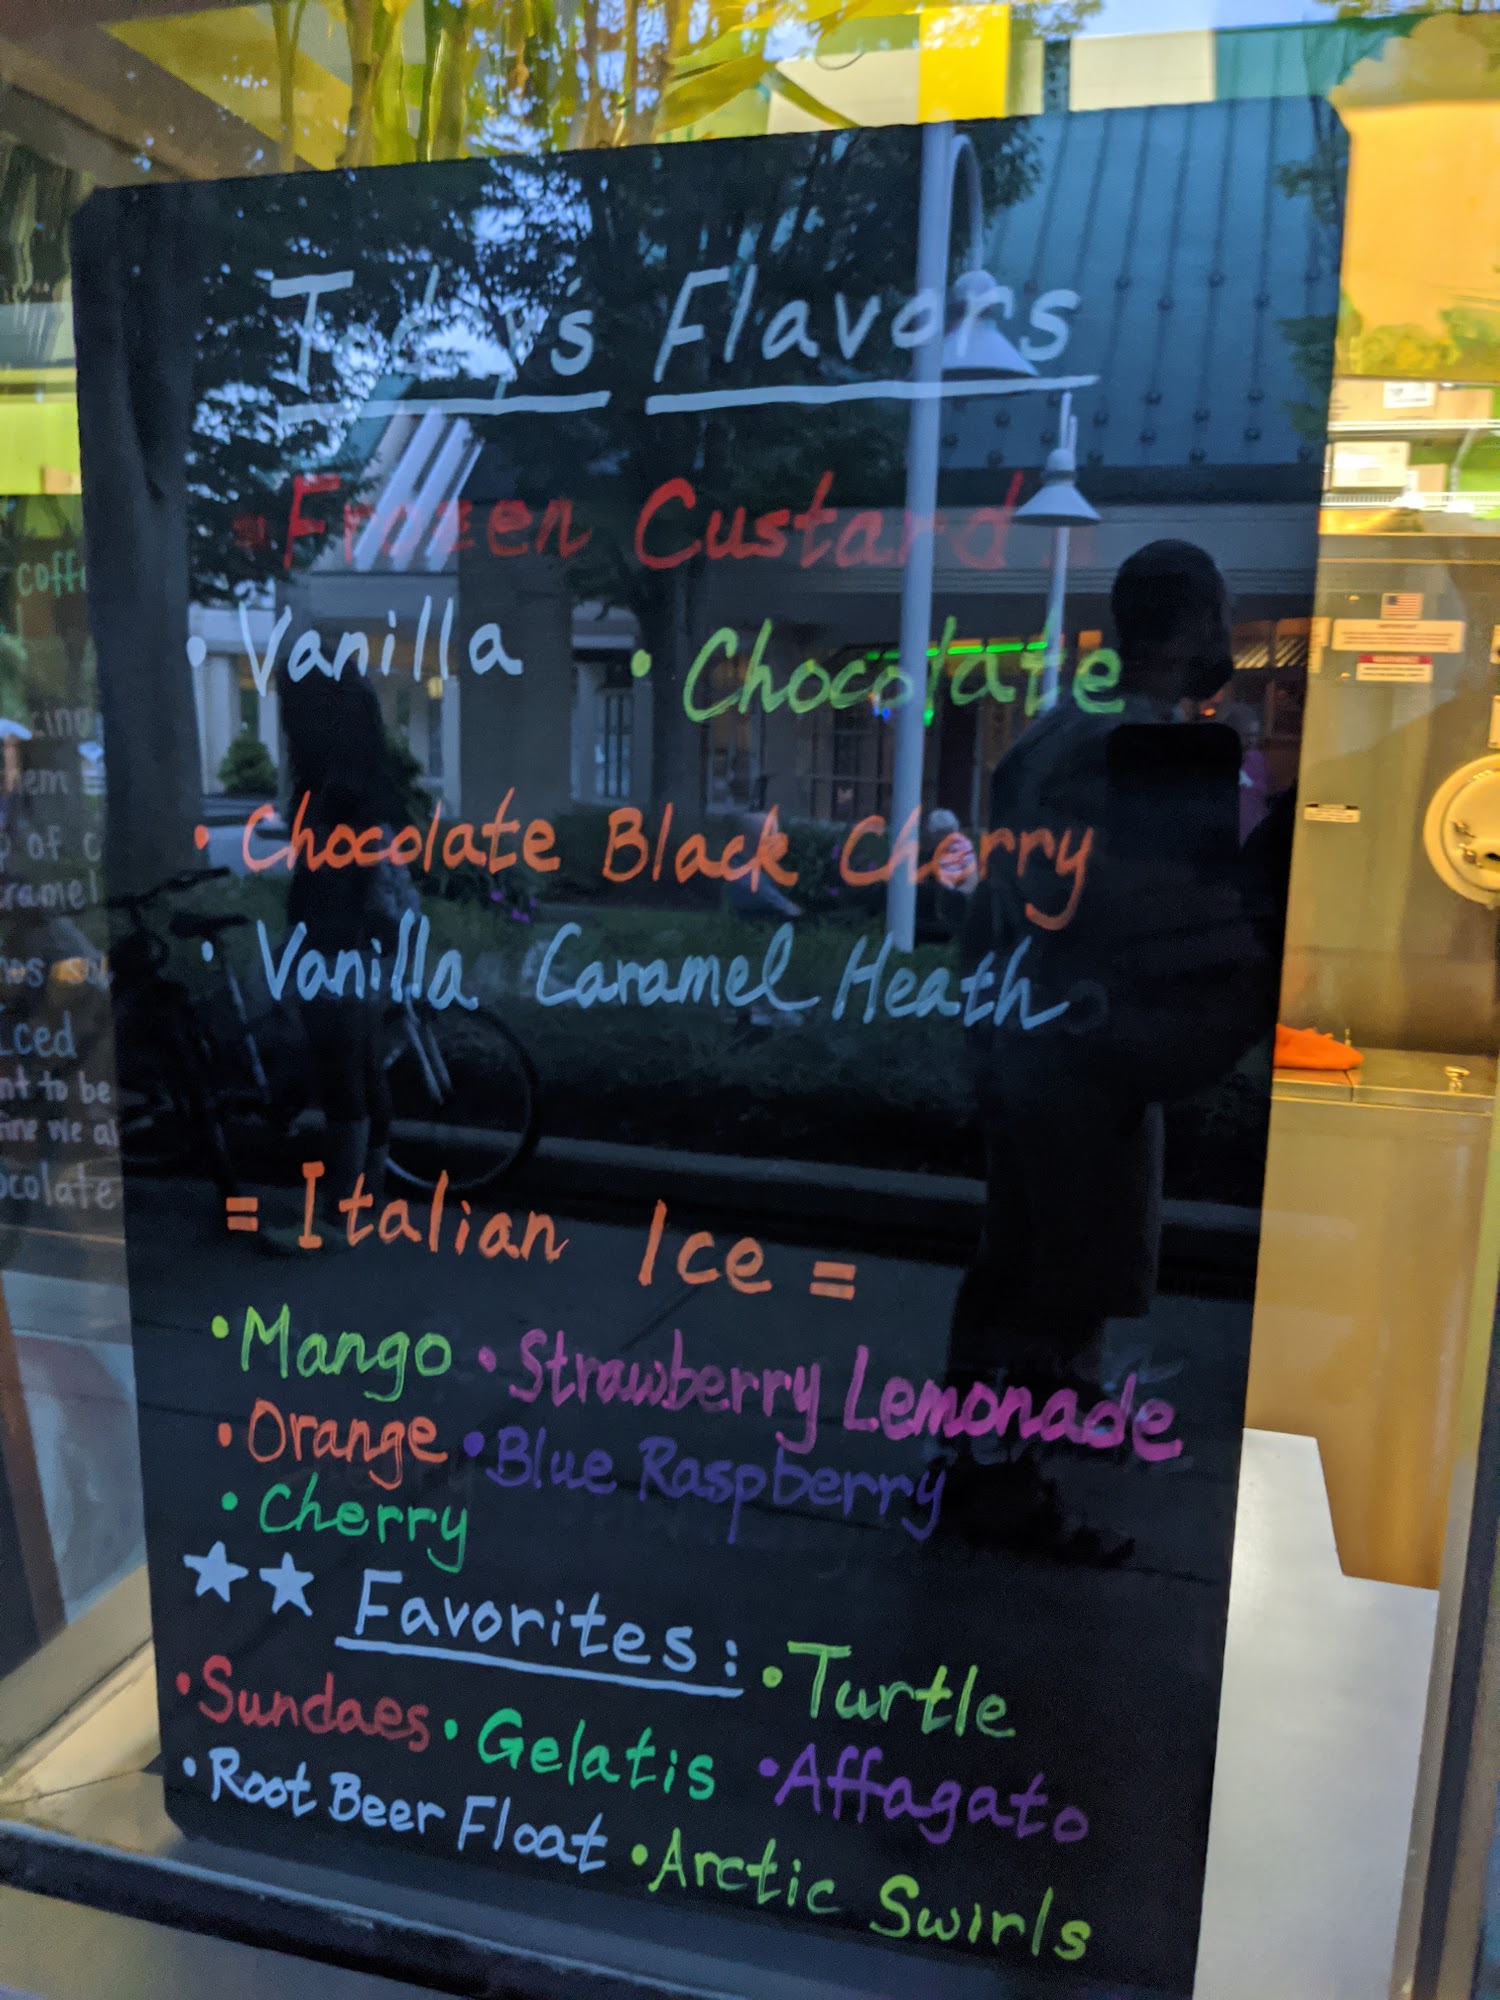 Today's Flavors
= Frozen Custard =
• Vanilla • Chocolate
• Chocolate Black Cherry
• Vanilla Caramel Heath
= Italian Ice =
• Mango • Strawberry Lemonade
• Orange • Blue Raspberry
• Cherry
★★ Favorites: • Turtle
• Sundaes • Gelatis • Affagato
• Root Beer Float • Arctic Swirls
of c
iced
to be
we al